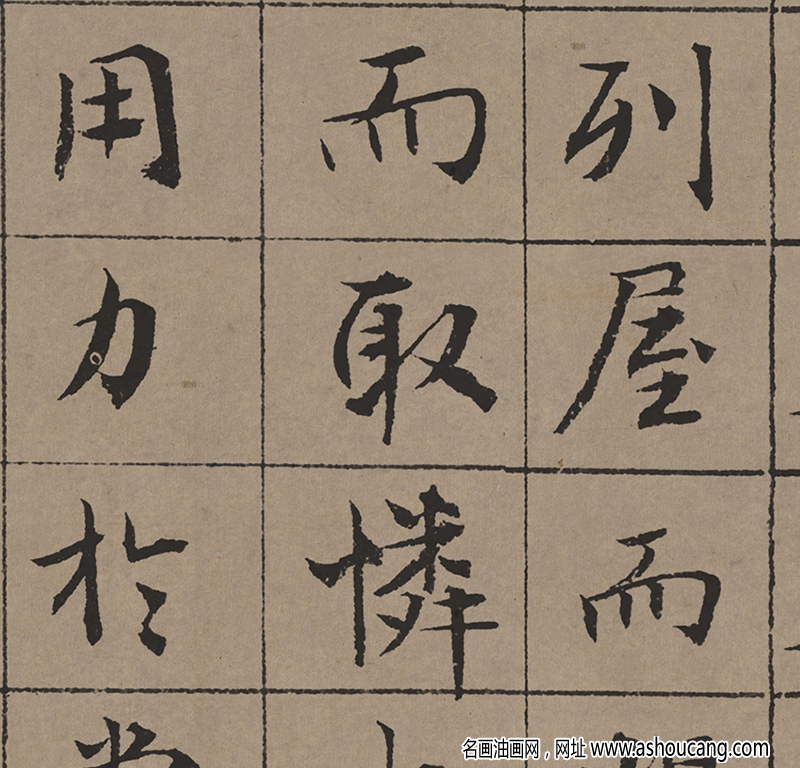 列屋而
而取憐
用力於當
名画油画网，网址 www.ashoucang.com